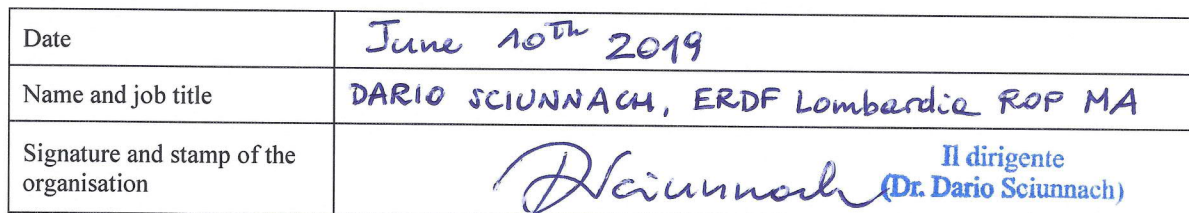 Date
June 10th 2019
Name and job title
DARIO SCIUNNACH, ERDF Lombardia ROP MA
Signature and stamp of the
organisation
DSciunnach
Il dirigente
(Dr. Dario Sciunnach)